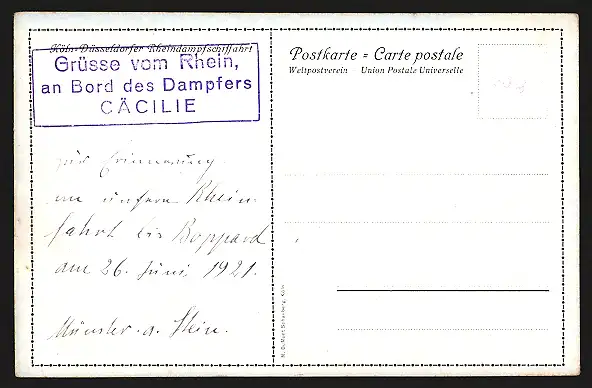 Köln-Düsseldorfer Rheindampfschiffahrt
Grüsse vom Rhein,
an Bord des Dampfers
CÄCILIE
zur Erinnerung
an unsere Rhein-
fahrt bis Boppard
am 26. Juni 1921.
Münster a. Stein.
Postkarte = Carte postale
Weltpostverein Union Postale Universelle
M. DuMont Schauberg, Köln